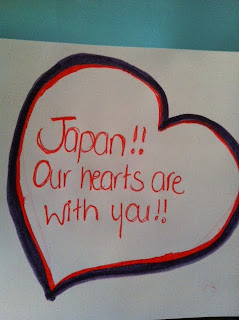 Japan!!
Our hearts are
with you!!